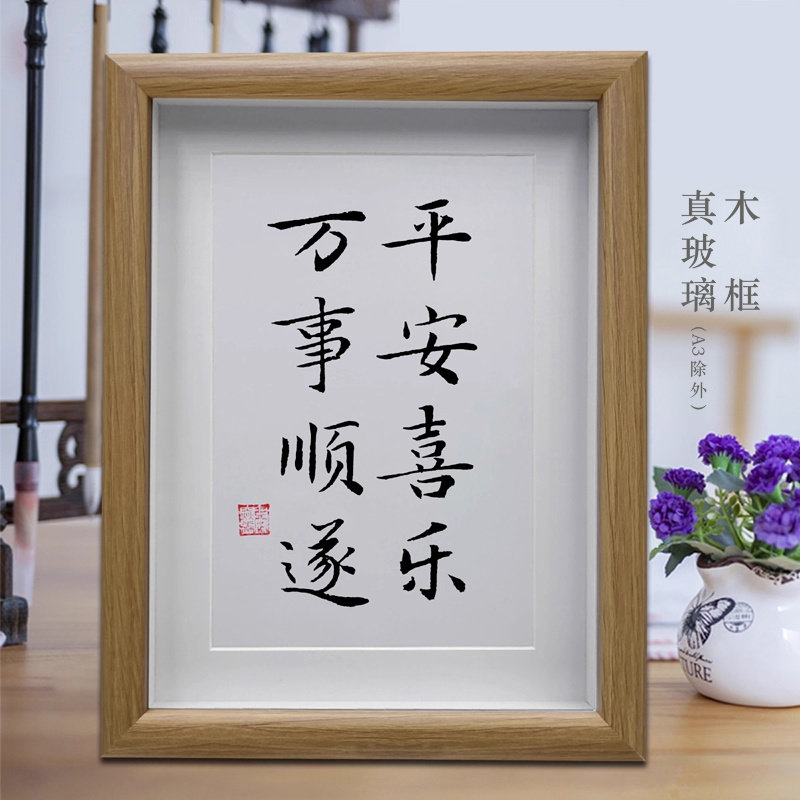 平安喜乐
万事顺遂
木框
真玻璃
(A3除外)
TURE